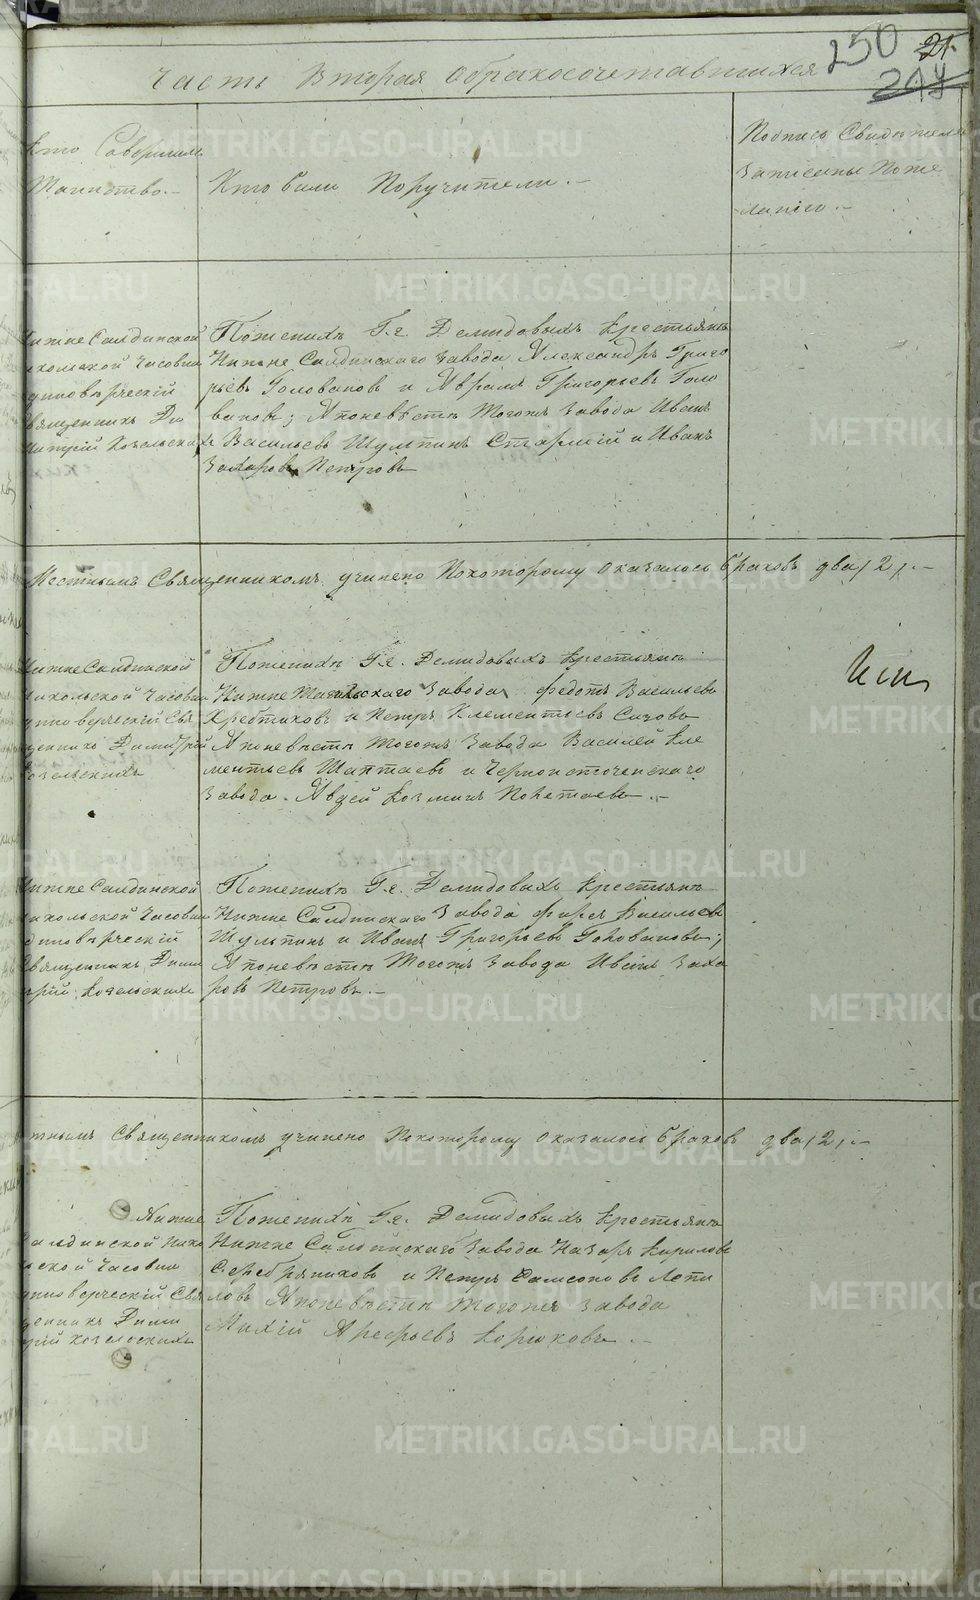 250 21.
247
Часть Вторая Обракосочетавшихся
Кто Совершал
Таинство.-
Кто были Поручители.-
Подпись Свидетелей
Записаны Поже
ланію.-
Нижне Салдинской
Никольской Часовни
Единоверческій
Священникъ Ди
митрій Козельскихъ
Поженихѣ Г.г. Демидовыхъ Крестьянѣ
Нижне Салдинскаго Завода Александръ Григо
рьевъ Головановъ и Аврамъ Григорьевъ Голо
вановъ; Апоневѣстѣ Тогожъ Завода Иванъ
Васильевъ Шулпинъ Старшій и Иванъ
Захаровъ Петровъ
Местнымъ Священникомъ учинено Покоторому Оказалось браковъ два /2/.-
Нижне Салдинской
Никольской Часовни
Единоверческій Свя
щенникъ Димитрій
Козельскихъ
Поженихѣ Г.г. Демидовыхъ Крестьянѣ
Нижне Тагильскаго Завода Федотъ Васильевъ
Хребтиковъ и Петръ Клементьевъ Сизовъ
Апоневѣстѣ Тогожъ Завода Василей Кле
ментьевъ Шаптаевъ и Черноисточенскаго
Завода Авдей Козминъ Покетаевъ.-
Нижне Салдинской
Никольской Часовни
Единоверческій
Священникъ Дими
трій Козельскихъ
Поженихѣ Г.г. Демидовыхъ Крестьянѣ
Нижне Салдинскаго Завода Фирсъ Васильевъ
Шулпинъ и Иванъ Григорьевъ Головановъ;
Апоневѣстѣ Тогожъ Завода Иванъ Заха
ровъ Петровъ.-
Местнымъ Священникомъ учинено Покоторому Оказалось браковъ два /2/.-
Нижне
Салдинской Нико
льской Часовни
Единоверческій Свя
щенникъ Дими
трій Козельскихъ
Поженихѣ Г.г. Демидовыхъ Крестьянѣ
Нижне Салдинскаго Завода Назаръ Кириловъ
Серебряниковъ и Петръ Самсоновъ Лепи
ловъ Апоневѣстѣ Тогожъ Завода
Михій Арефьевъ Коршковъ.-
METRIKI.GASO-URAL.RU